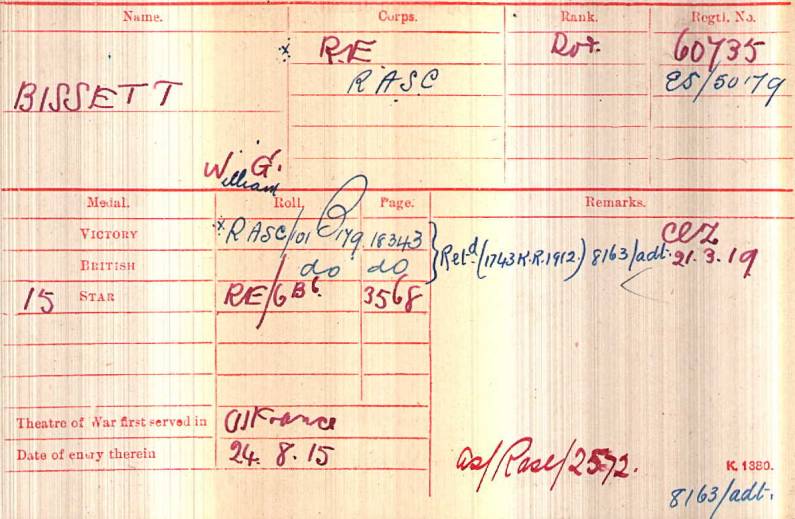 Name. Corps. Rank. Regtl. No.
x R.E Dvr. 60735
BISSETT RASC ES/50179
W. G.
William
Medal. Roll. Page. Remarks.
VICTORY x RASC/101 B179 18343 Retd (1743 K.R.1912.) 8163/adt. Cl Z
BRITISH do do 21.3.19
15 STAR RE/6 B6. 3568
Theatre of War first served in (1) France
Date of entry therein 24. 8. 15
K. 1380.
8163/adt.